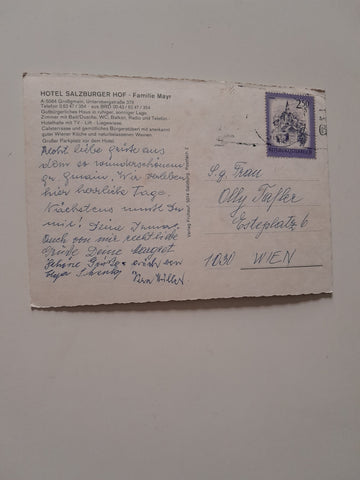 HOTEL SALZBURGER HOF - Familie Mayr
A-5084 Großgmain, Untersbergstraße 378
Telefon 0 62 47 / 354 aus BRD 00 43 / 62 47 / 354
Gutbürgerliches Haus in ruhiger, sonniger Lage.
Zimmer mit Bad/Dusche, WC, Balkon, Radio und Telefon.
Hotelhalle mit TV - Lift - Liegewiese
Caféterrasse und gemütliches Bürgerstüberl mit anerkannt
guter Wiener Küche und naturbelassenen Weinen.
Großer Parkplatz vor dem Hotel.
liebe Grüße aus
dem so wunderschönen
Gmain. Wir verleben
hier herrliche Tage.
Nächstens mußt Du
mit! Deine
Auch von mir recht liebe
Grüße Deine Margret
Schöne Grüße
2.50
REPUBLIK ÖSTERREICH
S.g. Frau
Olly Tafler
Esteplatz 6
1030 WIEN